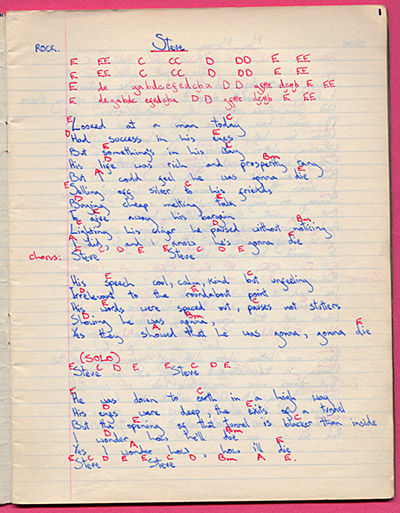 1
ROCK. Steve
E EE C CC D DD E EE
E EE C CC D DD E EE
E de D D E EE
E D D E EE
E C
Looked at a man today
D E
Had success in his eyes
E C
But something's in his
D Bm
His life was rich and prosperity rang
A E
But I could feel he was gonna die
E C
Selling off silver to his friends
D E
Buying cheap melting talk
E C
To away his bargain
D Bm
Lighting his he paused without noticing
A E
I did, and I know he's gonna die
E C D E E C D E
chorus: Steve Steve
E C
His speech cool, calm, kind but unfeeling
D E
Irrelevant to the roundabout point
E C
His words were spaced out, pauses not stutters
D Bm
Showing he was gonna,
A E
Yes they showed that he was gonna, gonna die
(SOLO)
E C D E E C D E
Steve Steve
E C
He was down to earth in a high way
D E
His eyes were deep, the exits of a tunnel
E C
But the opening of that tunnel is blacker than inside
D Bm
I wonder how he'll die
A E
Yes I wonder how, how i'll die
E C D E E C D Bm A E.
Steve Steve